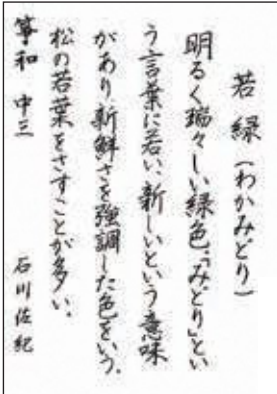 若緑（わかみどり）
明るく瑞々しい緑色。「みどり」とい
う言葉に若い、新しいという意味
があり新鮮さを強調した色をいう。
松の若葉をさすことが多い。
筝和 中三 石川佐紀